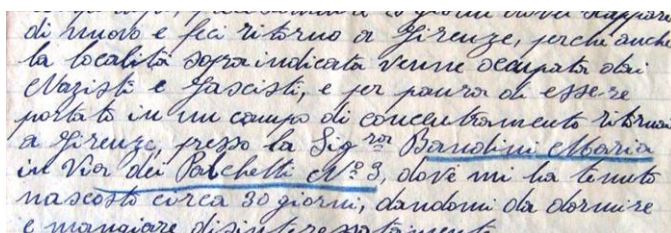 di nuovo e feci ritorno a Firenze, perchè anche
la località sopra indicata venne occupata dai
Nazisti e Fascisti, e per paura di essere
portato in un campo di concentramento ritornai
a Firenze, presso la Sig.ra Bandini Maria
in Via dei Palchetti Nº 3, dove mi ha tenuto
nascosto circa 30 giorni, dandomi da dormire
e mangiare disinteressatamente